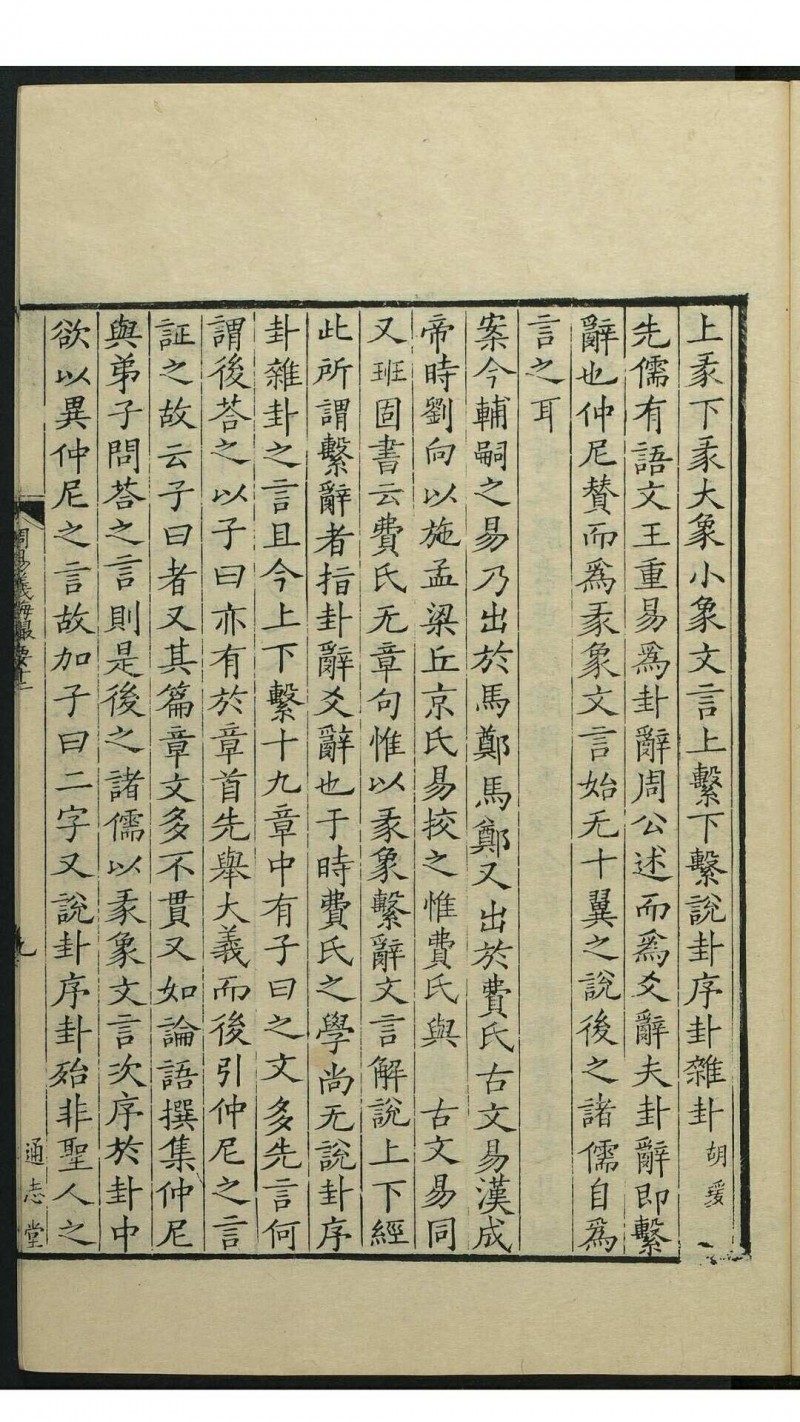 上彖下彖大象小象文言上繫下繫說卦序卦雜卦 胡瑗
先儒有語文王重易爲卦辭周公述而爲爻辭夫卦辭即繫
辭也仲尼賛而爲彖象文言始无十翼之說後之諸儒自爲
言之耳
案今輔嗣之易乃出於馬鄭馬鄭又出於費氏古文易漢成
帝時劉向以施孟梁丘京氏易挍之惟費氏與 古文易同
又班固書云費氏无章句惟以彖象繫辭文言解說上下經
此所謂繫辭者指卦辭爻辭也于時費氏之學尚无說卦序
卦雜卦之言且今上下繫十九章中有子曰之文多先言何
謂後荅之以子曰亦有於章首先舉大義而後引仲尼之言
証之故云子曰者又其篇章文多不貫又如論語撰集仲尼
與弟子問荅之言則是後之諸儒以彖象文言次序於卦中
欲以異仲尼之言故加子曰二字又說卦序卦殆非聖人之
周易義海撮要
九
通志堂